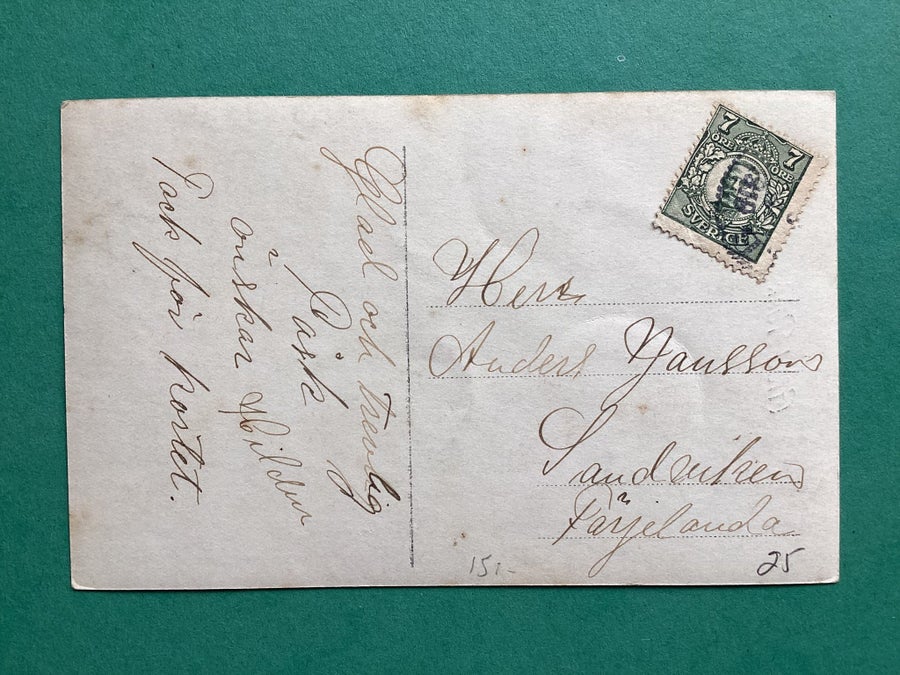 Glad och trevlig
Påsk
önskar Hildur
Tack för kortet.
7 7
ÖRE ÖRE
SVERIGE
Herr
Anders Jansson
Sandviken
Färjelanda
15:-
25